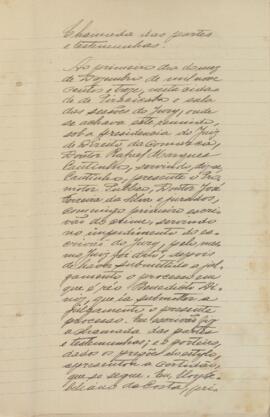 Chamada das partes
e testemunhas.
Ao primeiro dia do mez
de Dezembro de mil nove
centos e treze, nesta cidade
de Piracicaba e sala
das sessões do Jury, onde
se achava este reunido,
sob a presidencia do Juiz
de Direito da Comarca,
Doutor Rafael Marques
Cantinho, servindo de
presente o Pro
motor Publico, Doutor José
Ferreira da Silva e jurados,
commigo primeiro escri
vão do crime, servindo
no impedimento do es
crivão do Jury, pelo mes
mo Juiz foi dito, depois
de haver submettido a jul
gamento o processo em
que é réo Benedicto
que ia submetter a
julgamento o presente
processo. Eu escrivão fiz
a chamada das partes
e testemunhas; e o porteiro,
dados os pregões do estylo,
apresentou a certidão
que se segue. Eu,
da Costa, pri